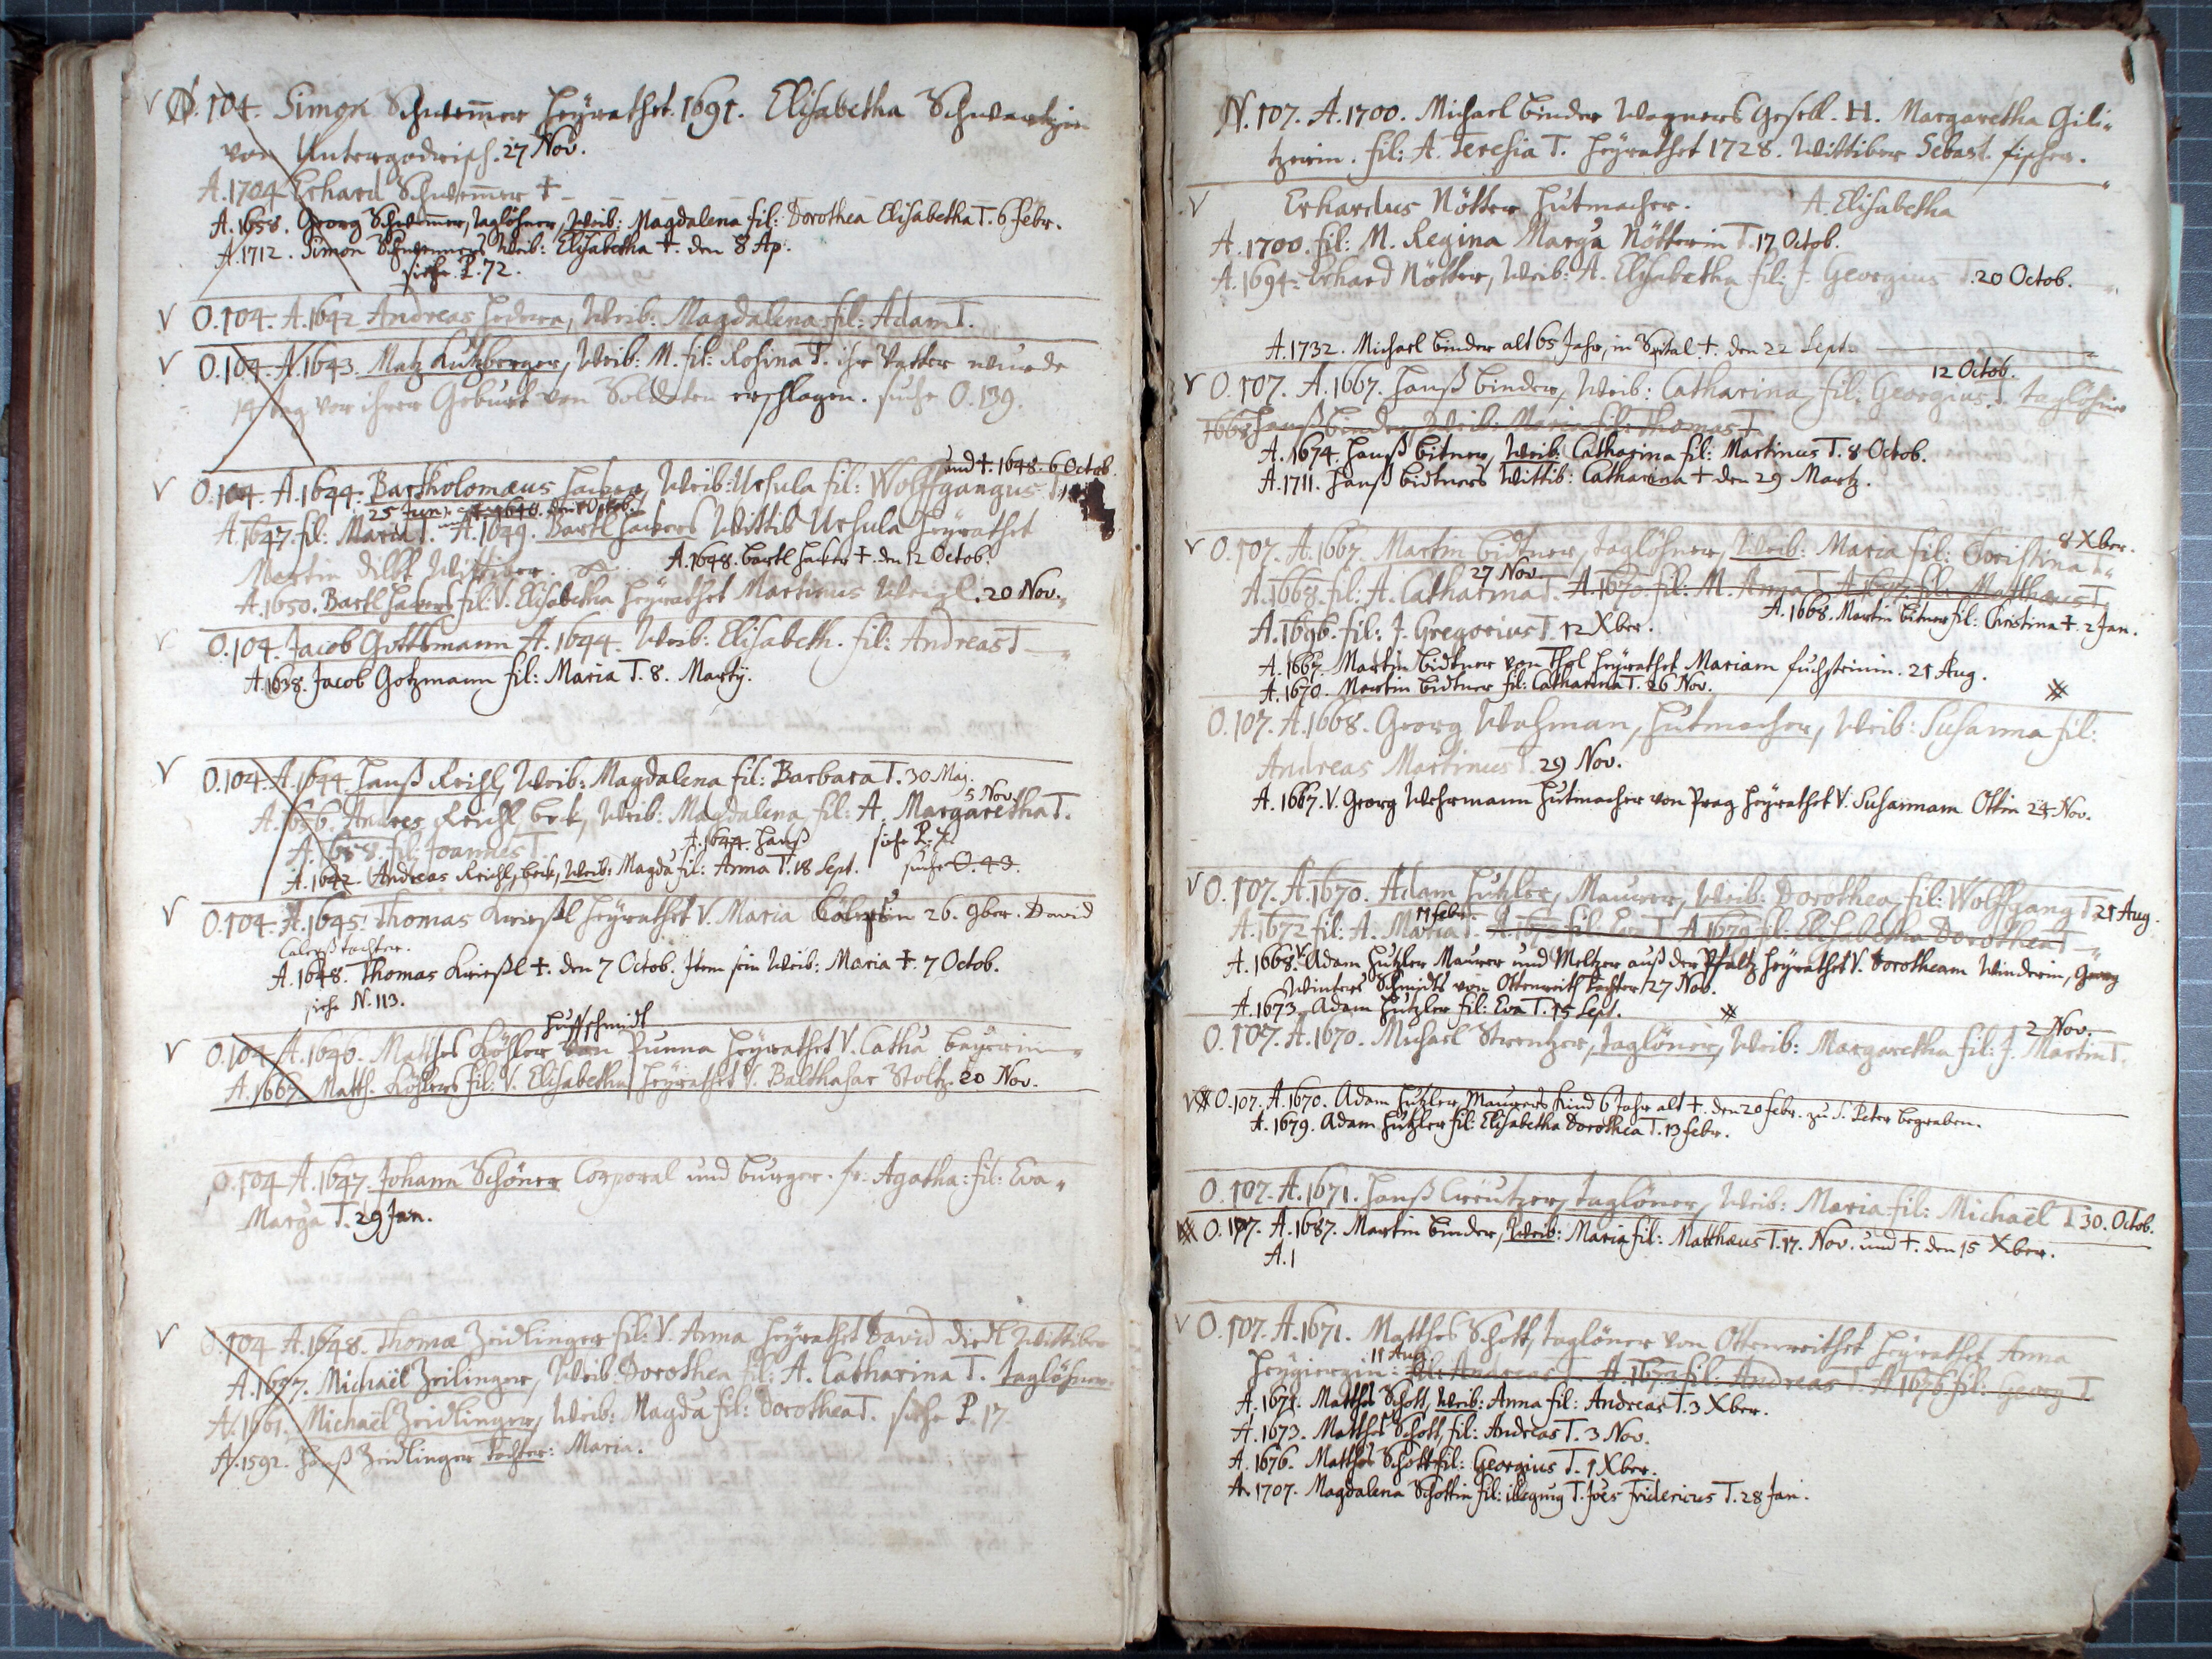 V N. 104. Simon Schwemmer heÿrathet 1691. Elisabetha Schwartzin
von Untergodrisch. 27 Nov.
A. 1704 Erhard Schwem̄er †
A. 1658. Georg Schwem̄er, taglöhner, Weib: Magdalena fil: Dorothea Elisabetha T. 6 febr.
A. 1712. Simon Schwemers Weib: Elisabetha †. den 8 Ap:
siehe P. 72.
V O. 104. A. 1642 Andreas Weib: Magdalena fil: Adam T.
V O. 104. A. 1643. Matz Weib: M. fil: Rosina T. ihr Vatter wurde
14 tag vor ihrer Geburt von Soldaten erschlagen. suche O. 139.
und †. 1648. 6 Octob.
V O. 104. A. 1644. Bartholomæus hackers, Weib: Ursula fil: Wolffgangus T.
25 Jun:
A. 1647. fil: Maria T. A. 1649. Bartl hackers Wittib Ursula heÿrathet
Martin Dillt Wittiber. A. 1648. bartl hacker †. den 12 Octob.
A. 1650. Bartl hackers fil: V. Elisabetha heÿrathet Martinus Weigl. 20 Nov.
V O. 104. Jacob Gottsmann A. 1644. Weib: Elisabeth. fil: Andreas T
A. 1638. Jacob Gotzmann fil: Maria T. 8. Martÿ.
V O. 104. A. 1644. hanß Reichl, Weib: Magdalena fil: Barbara T. 30 Maj.
5 Nov.
A. 1656. Andres Reichl, beck, Weib: Magdalena fil: A. Margaretha T.
A. 1658. fil: Joannes T. A. 1644. hanß siehe P. 7.
A. 1642. Andreas Reichl, beck, Weib: Magda fil: Anna T. 18 Sept. suche O. 43.
V O. 104. A. 1645. Thomas heÿrathet V. Maria 26. 9ber. David
tochter.
A. 1648. Thomas †. den 7 Octob. Item sein Weib: Maria †. 7 Octob.
siehe N. 113.
huffschmidt
V O. 104 A. 1646. Matthes Köhler von heÿrathet V. Catha baÿerin
A. 1667. Matth. Köhlers fil: V. Elisabetha heÿrathet V. Balthasar Stoltz. 20 Nov.
O. 104 A. 1647. Johann Schöner Corporal und burger. Agatha: fil: Eva
Marga T. 29 Jan.
V O. 104 A. 1648. Thomæ Zeidlinger fil: V. Anna heÿrathet David Diedl Wittiber
A. 1657. Michaël Zeilinger, Weib: Dorothea fil: A. Catharina T. taglöhner
A. 1661. Michaël Zeidlinger, Weib: Magda fil: Dorothea T. siehe P. 17.
A. 1592. hanß Zeidlinger tochter: Maria.
N. 107. A. 1700. Michael binder Wagners Gesell. H. Margaretha Gili
tzerin. fil: A. Teresia T. heÿrathet 1728. Wittiber Sebast. fischer.
V Erhardus Nötter hutmacher. A. Elisabetha
A. 1700. fil: M. Regina Marga Nötterin T. 17 Octob.
A. 1694. Erhard Nötter, Weib: A. Elisabetha fil: J. Georgius T. 20 Octob.
A. 1732. Michael binder alt 65 Jahr, in Spital †. den 22 Sept.
12 Octob.
V O. 107. A. 1667. hanß binder, Weib: Catharina, fil: Georgius T. taglöhner
1668 hanß binder Weib: Maria fil: Thomas T.
A. 1674. hanß bitner, Weib: Catharina fil: Martinus T. 8 Octob.
A. 1711. hanß bidtners Wittib: Catharina † den 29 Martz.
8 Xber.
V O. 107. A. 1667. Martin bidtner, taglöhner, Weib: Maria fil: Christina T.
27 Nov.
A. 1668. fil: A. Catharina T. A. 1670. fil: M. Anna T. A. 1687. fil: Matthæus T.
A. 1696. fil: J. Gregorius T. 12 Xber. A. 1668. Martin bitner fil: Christina †. 2 Jan.
A. 1667. Martin bidtner von heÿrathet Mariam 21 Aug.
A. 1670. Martin bidtner fil: Catharina T. 26 Nov.
O. 107. A. 1668. Georg Wahman, hutmacher, Weib: Susanna fil:
Andreas Martinus T. 29 Nov.
A. 1667. V. Georg Wehrmann hutmacher von Prag heÿrathet V. Susannam Ottin 24 Nov.
V O. 107. A. 1670. Adam hutzler, Maurer, Weib: Dorothea, fil: Wolffgang T. 21 Aug.
11 febr.
A. 1672 fil: A. Maria T. A. 1673 fil: Eva T. A. 1679 fil: Elisabetha Dorothea T
A. 1668. V. Adam hutzler Maurer und Meltzer auß der Pfaltz heÿrathet V. Dorotheam Winderin, Georg
Winters Schmidts von Ottenreith tochter 27 Nov.
A. 1673. Adam hutzler fil: Eva T. 15 Sept.
2 Nov.
O. 107. A. 1670. Michael taglöner, Weib: Margaretha fil: J. Martin T.
V O. 107. A. 1670. Adam hutzler, Maurers kind 6 Jahr alt †. den 20 febr. zu S. Peter begraben.
A. 1679. Adam hutzler fil: Elisabetha Dorothea T. 13 febr.
O. 107. A. 1671. hanß Creutzer, taglöner, Weib: Maria fil: Michaël T 30. Octob.
O. 107. A. 1687. Martin binder, Weib: Maria fil: Matthæus T. 17. Nov. und †. den 15 Xber.
A. 1
V O. 107. A. 1671. Matthes Schott, taglöner von Ottenreithet heÿrathet Anna
11 Aug.
fil: Andreas T. A. 1673 fil: Andreas T. A. 1676 fil: Georg T.
A. 1671. Matthes Schott, Weib: Anna fil: Andreas T. 3 Xber.
A. 1673. Matthes Schott, fil: Andreas T. 3 Nov.
A. 1676. Matthes Schott fil: Georgius T. 1 Xber.
A. 1707. Magdalena Schottin fil: T. Joes Fridericus T. 28 Jan.